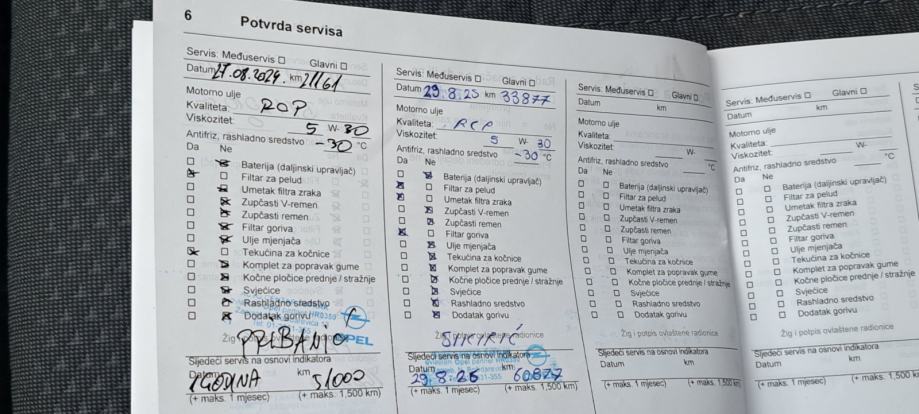 6 Potvrda servisa
Servis: Međuservis □ Glavni □
Datum 27.08.2024. km 21161
Motorno ulje
Kvaliteta:
Viskozitet: 5 W-30
Antifriz, rashladno sredstvo -30 °C
Da Ne
Baterija (daljinski upravljač)
Filtar za pelud
Umetak filtra zraka
Zupčasti V-remen
Zupčasti remen
Filtar goriva
Ulje mjenjača
Tekućina za kočnice
Komplet za popravak gume
Kočne pločice prednje / stražnje
Svjećice
Rashladno sredstvo
Dodatak gorivu
Žig
OPEL
Sljedeći servis na osnovi indikatora
Datum 1 GODINA km 51000
(+ maks. 1 mjesec) (+ maks. 1,500 km)
Servis: Međuservis □ Glavni □
Datum 29.8.25 km 33877
Motorno ulje
Kvaliteta:
Viskozitet: 5 W-30
Antifriz, rashladno sredstvo -30 °C
Da Ne
Baterija (daljinski upravljač)
Filtar za pelud
Umetak filtra zraka
Zupčasti V-remen
Zupčasti remen
Filtar goriva
Ulje mjenjača
Tekućina za kočnice
Komplet za popravak gume
Kočne pločice prednje / stražnje
Svjećice
Rashladno sredstvo
Dodatak gorivu
Sljedeći servis na osnovi indikatora
Datum 29.8.26 km 60877
(+ maks. 1 mjesec) (+ maks. 1,500 km)
Servis: Međuservis □ Glavni □
Datum km
Motorno ulje
Kvaliteta:
Viskozitet: W-
Antifriz, rashladno sredstvo °C
Da Ne
Baterija (daljinski upravljač)
Filtar za pelud
Umetak filtra zraka
Zupčasti V-remen
Zupčasti remen
Filtar goriva
Ulje mjenjača
Tekućina za kočnice
Komplet za popravak gume
Kočne pločice prednje / stražnje
Svjećice
Rashladno sredstvo
Dodatak gorivu
Žig i potpis ovlaštene radionice
Sljedeći servis na osnovi indikatora
Datum km
(+ maks. 1 mjesec) (+ maks. 1,500 km)
Servis: Međuservis □ Glavni □
Datum km
Motorno ulje
Kvaliteta:
Viskozitet: W-
Antifriz, rashladno sredstvo °C
Da Ne
Baterija (daljinski upravljač)
Filtar za pelud
Umetak filtra zraka
Zupčasti V-remen
Zupčasti remen
Filtar goriva
Ulje mjenjača
Tekućina za kočnice
Komplet za popravak gume
Kočne pločice prednje / stražnje
Svjećice
Rashladno sredstvo
Dodatak gorivu
Žig i potpis ovlaštene radionice
Sljedeći servis na osnovi indikatora
Datum km
(+ maks. 1 mjesec) (+ maks. 1,500 km)